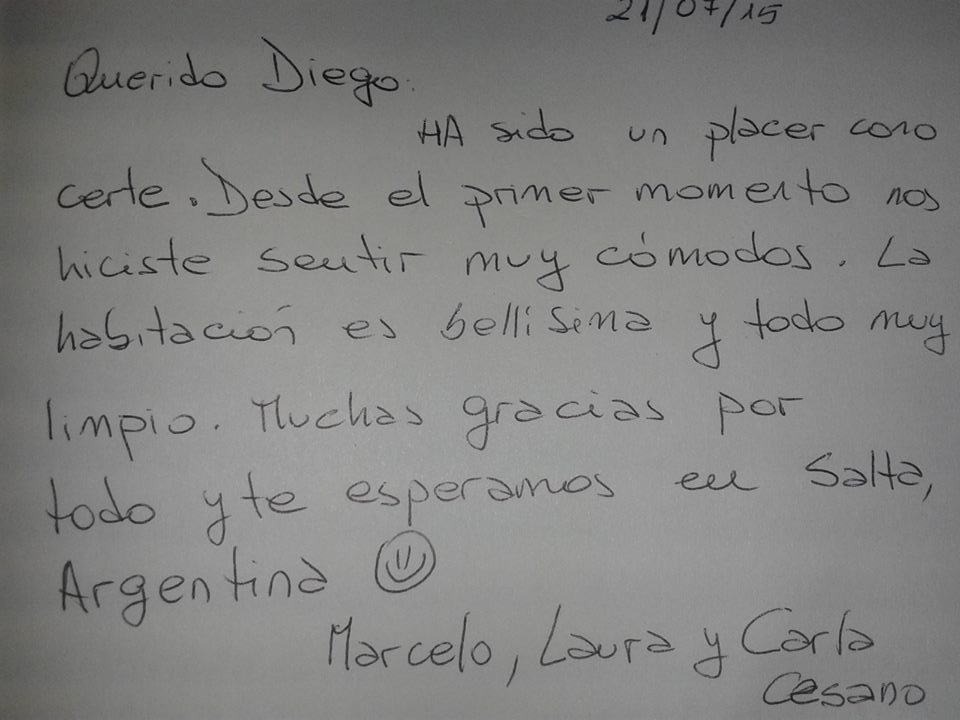 21/07/15
Querido Diego:
HA sido un placer cono
certe. Desde el primer momento nos
hiciste sentir muy cómodos. La
habitación es bellisima y todo muy
limpio. Muchas gracias por
todo y te esperamos en Salta,
Argentina
Marcelo, Laura y Carla
Cesano